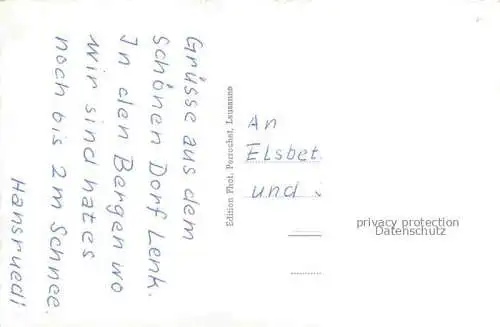 Grüsse aus dem
schönen Dorf Lenk.
In den Bergen wo
wir sind hat es
noch bis 2 m Schnee.
Hansruedi
Edition Phot. Perrochet, Lausanne
An
Elsbet.
und
privacy protection
Datenschutz